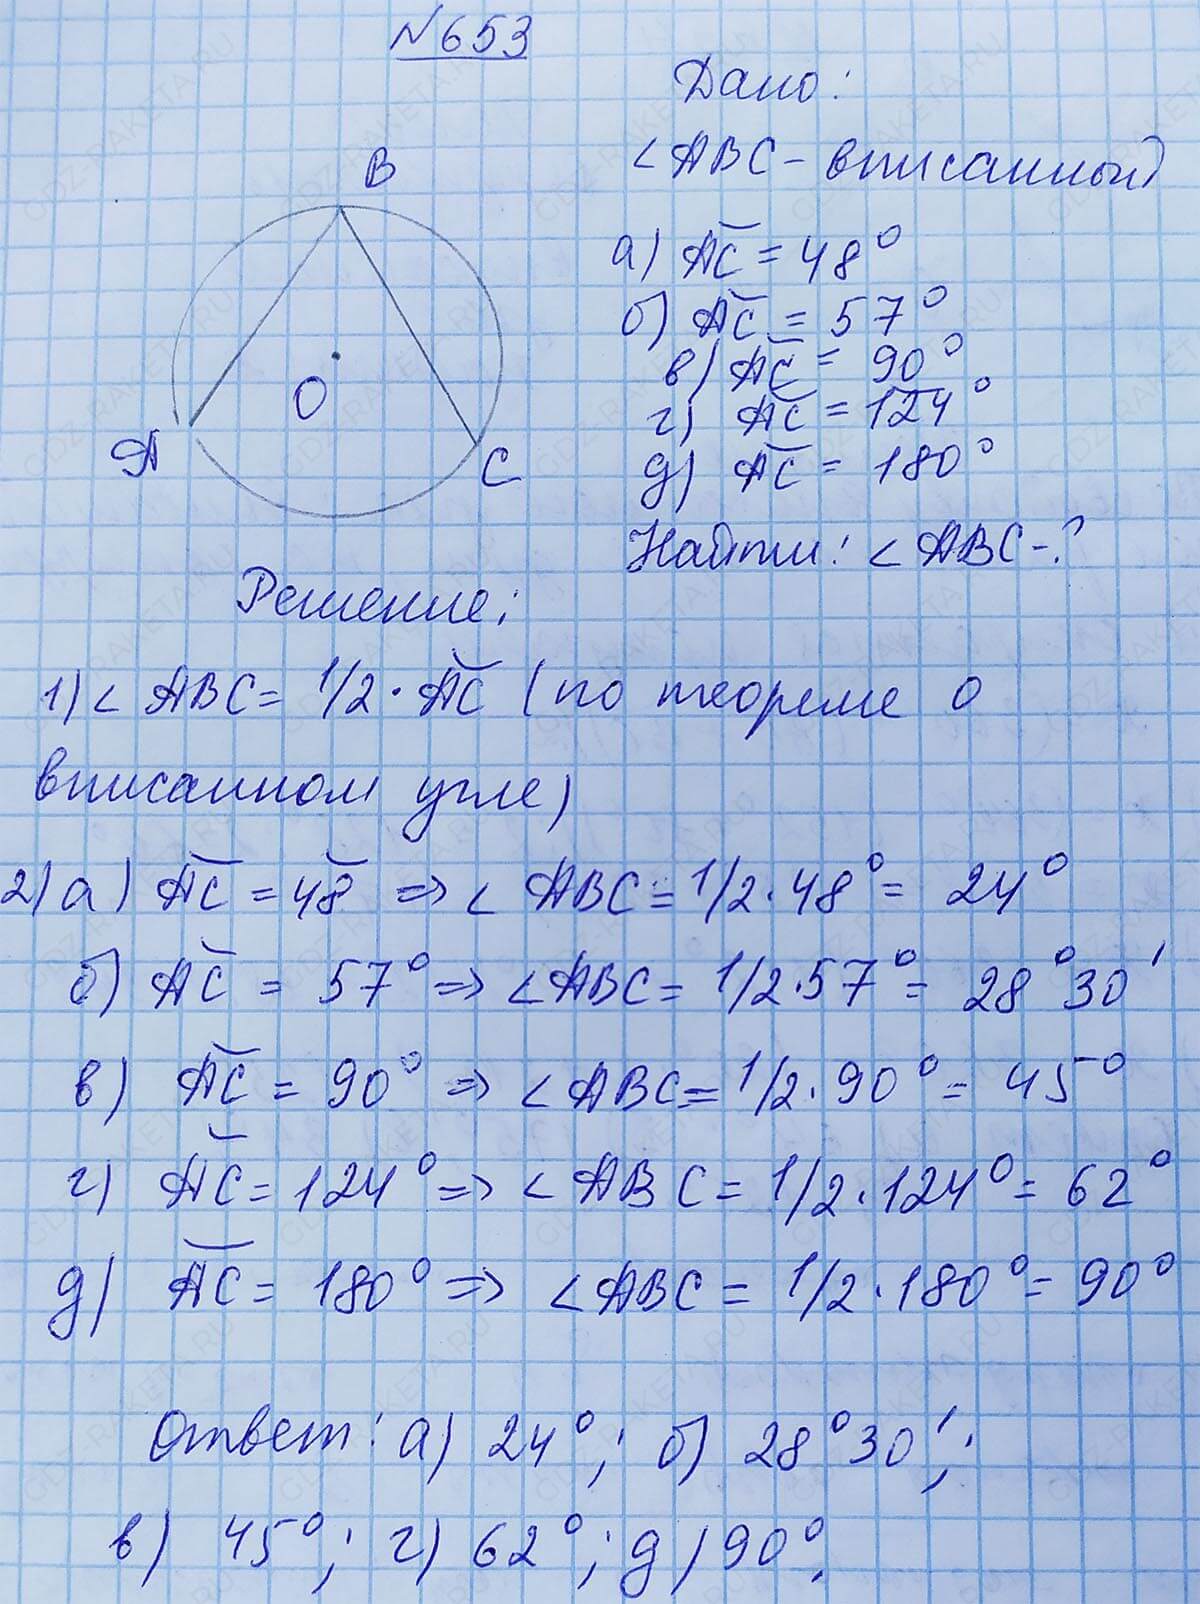 №653
Дано:
∠ABC - вписанный
а) A͝C = 48°
б) A͝C = 57°
в) A͝C = 90°
г) A͝C = 124°
д) A͝C = 180°
Найти: ∠ABC-?
B
O
A
C
Решение:
1) ∠ABC = 1/2 · A͝C (по теореме о
вписанном угле)
2) а) A͝C = 48 => ∠ABC = 1/2 · 48° = 24°
б) A͝C = 57° => ∠ABC = 1/2 · 57° = 28°30'
в) A͝C = 90° => ∠ABC = 1/2 · 90° = 45°
г) A͝C = 124° => ∠ABC = 1/2 · 124° = 62°
д) A͝C = 180° => ∠ABC = 1/2 · 180° = 90°
Ответ: а) 24°; б) 28°30';
в) 45°; г) 62°; д) 90°.
GDZ-RAKETA.RU